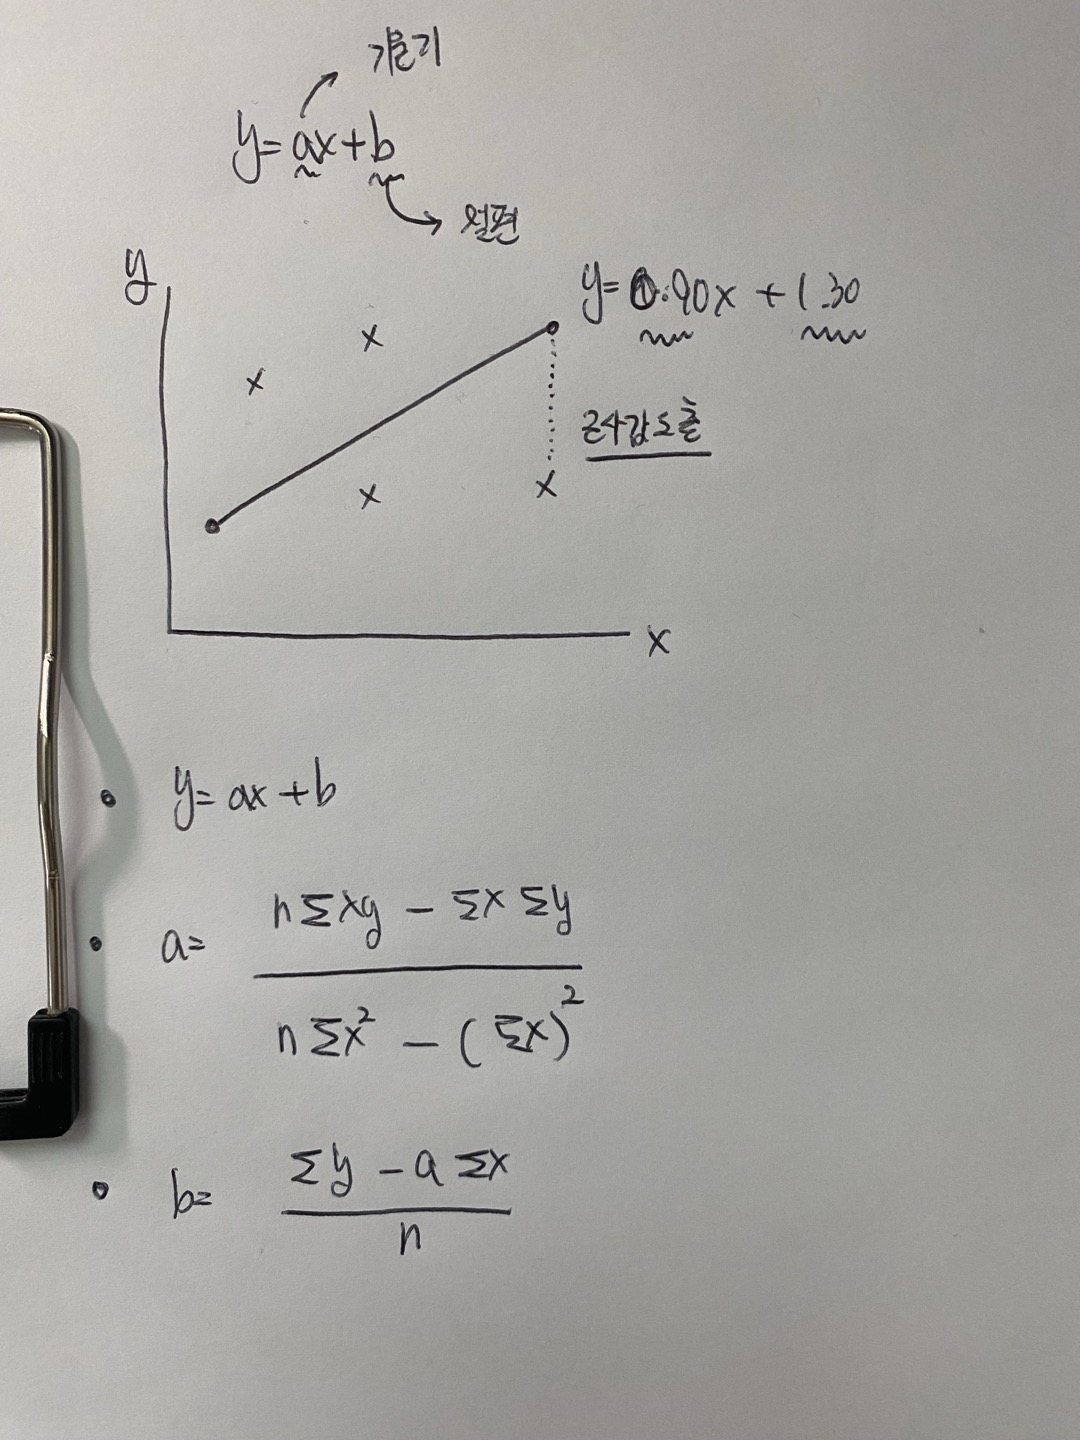 기울기
y=ax+b
절편
y
y=0.90x+1.30
근사값도출
x
• y=ax+b
• a=
nΣxy - Σx Σy
nΣx² - (Σx)²
• b=
Σy - aΣx
n